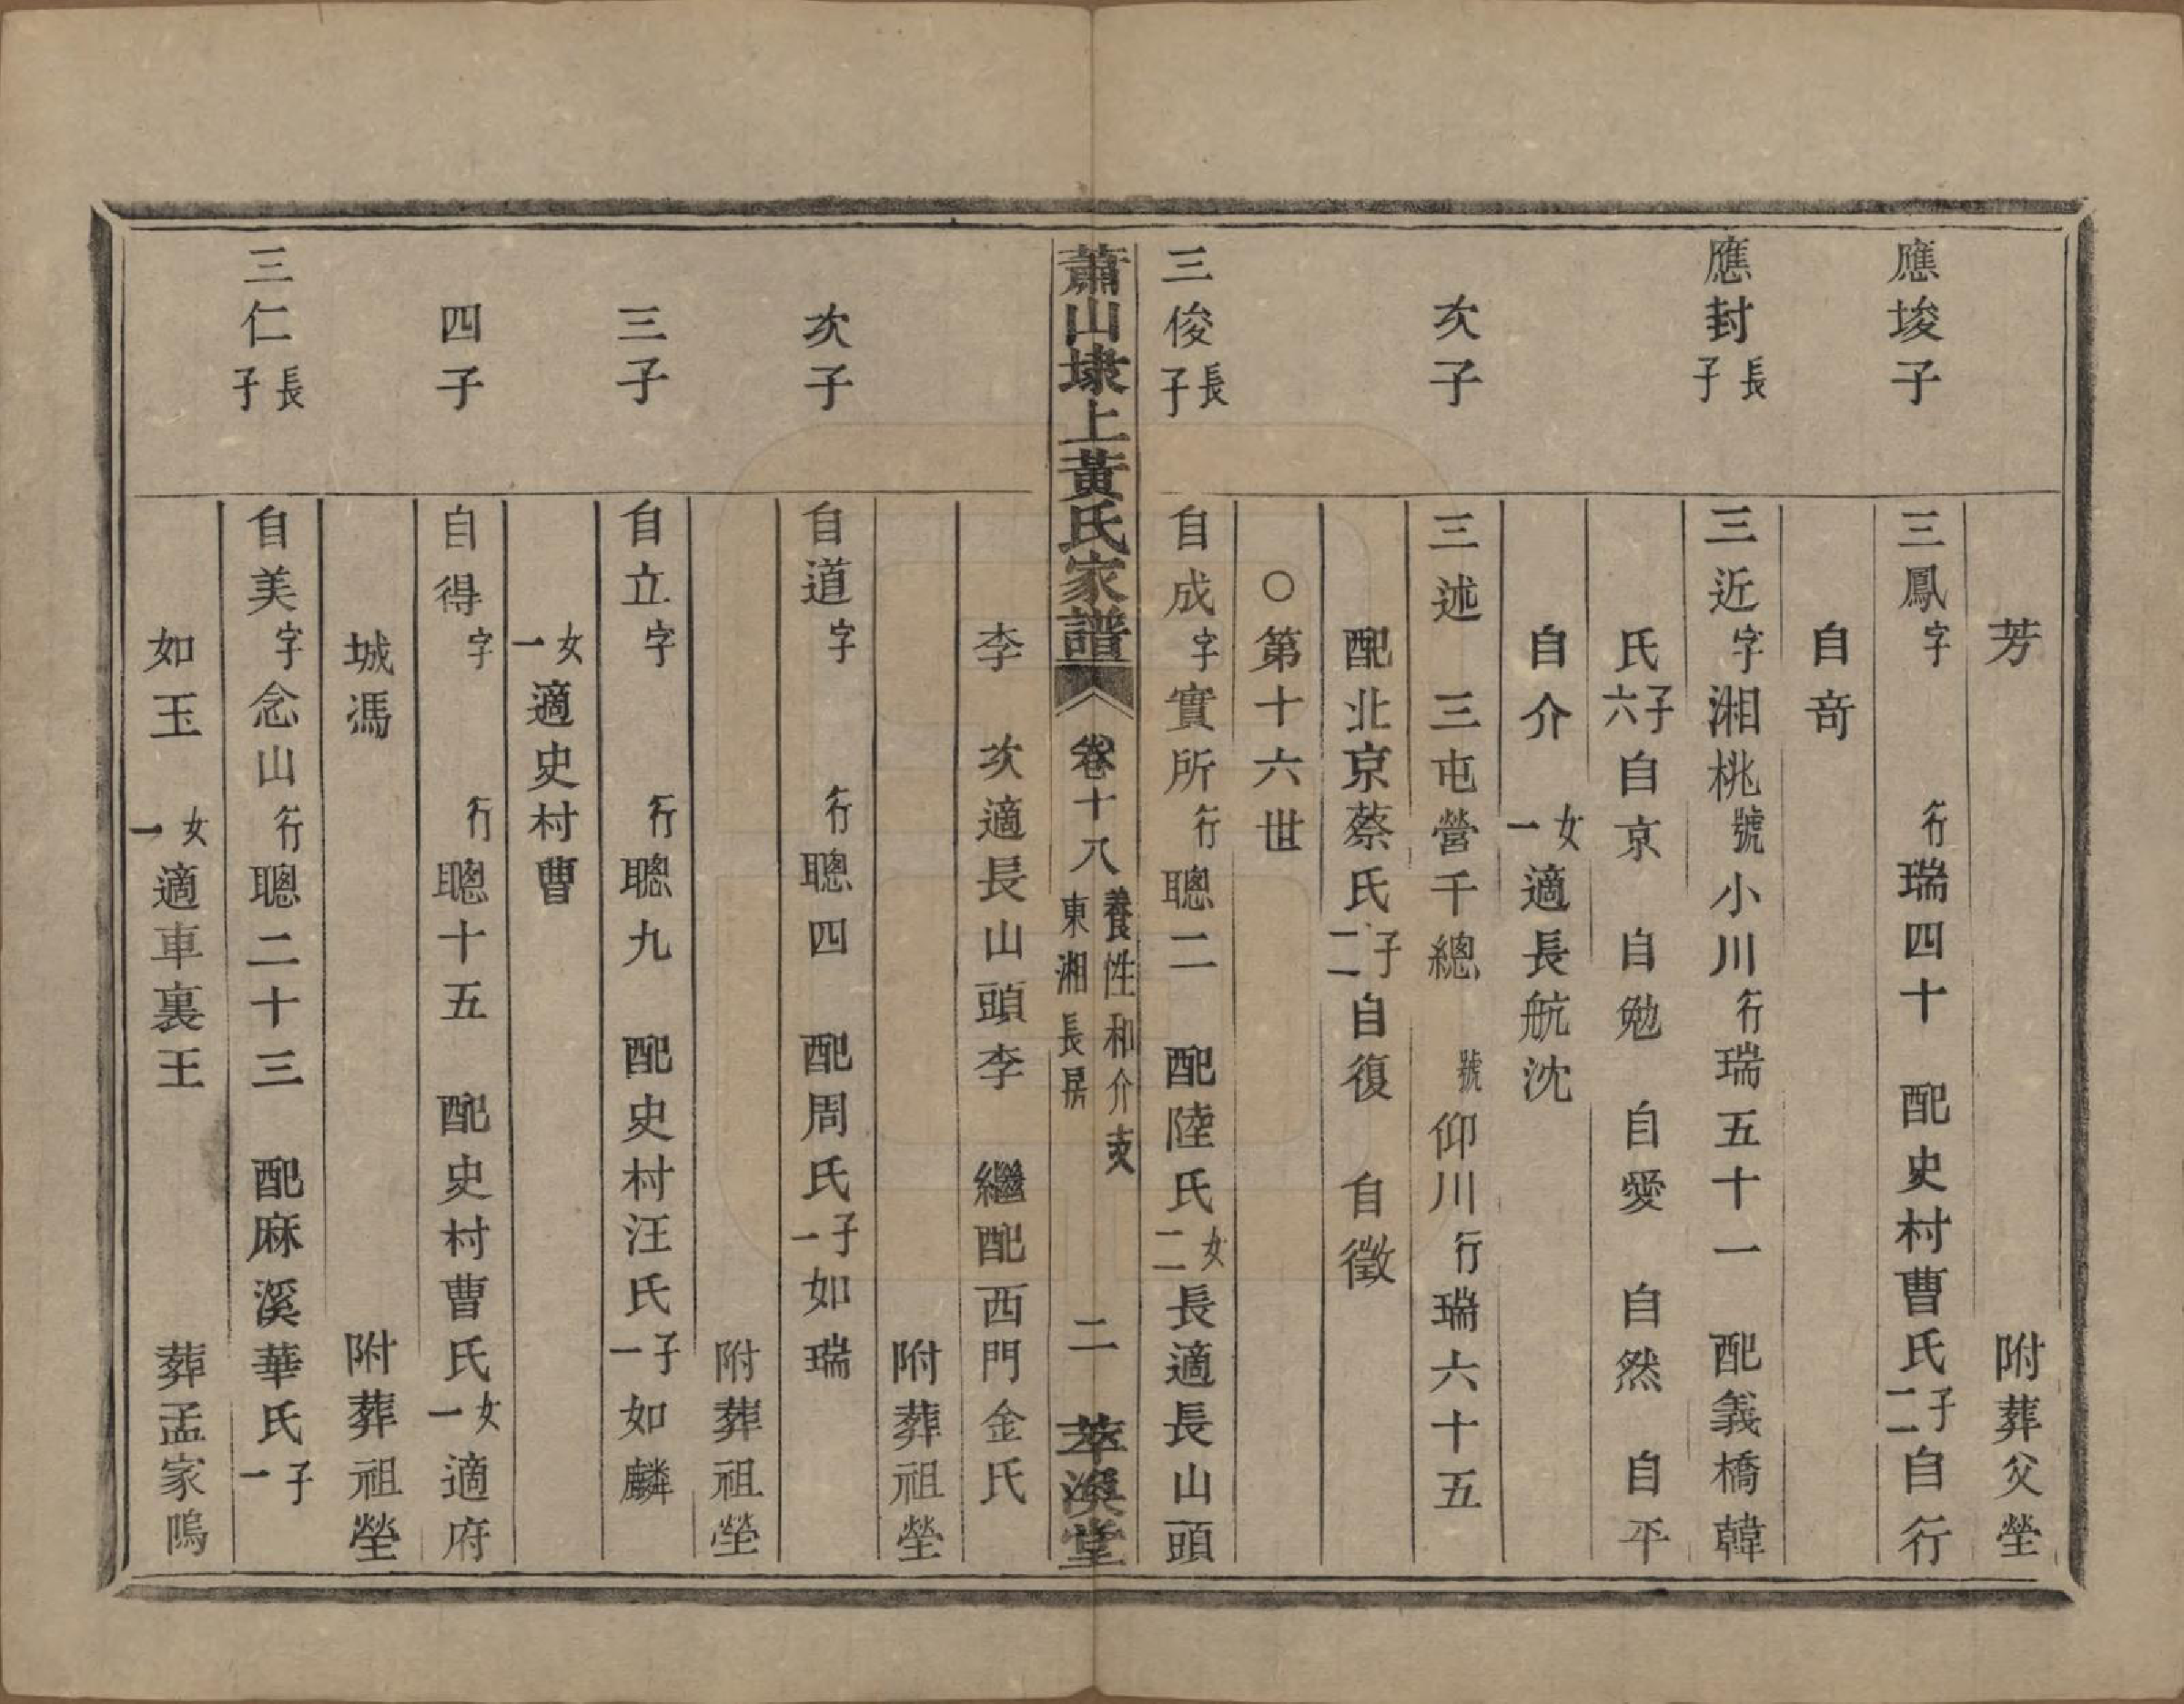 芳　附葬父塋
應埈子　三鳳字　行瑞四十　配史村曹氏子二自行
自竒
應封長子　三近字湘桃號小川行瑞五十一　配義橋韓
氏子六自京　自勉　自愛　自然　自平
自介　女一適長航沈
次子　三述　三屯營千總　號仰川行瑞六十五
配北京蔡氏子二自復　自徵
○第十六世
三俊長子　自成字實所行聰二　配陸氏女二長適長山頭
蕭山埭上黃氏家譜　卷十八　養性和介支東湘長房　二　萃渙堂
李　次適長山頭李　繼配西門金氏
附葬祖塋
次子　自道字　行聰四　配周氏子一如瑞
附葬祖塋
三子　自立字　行聰九　配史村汪氏子一如麟
女一適史村曹
四子　自得字　行聰十五　配史村曹氏女一適府
城馮　附葬祖塋
三仁長子　自美字念山行聰二十三　配麻溪華氏子一
如玉　女一適車裏王　葬孟家塢